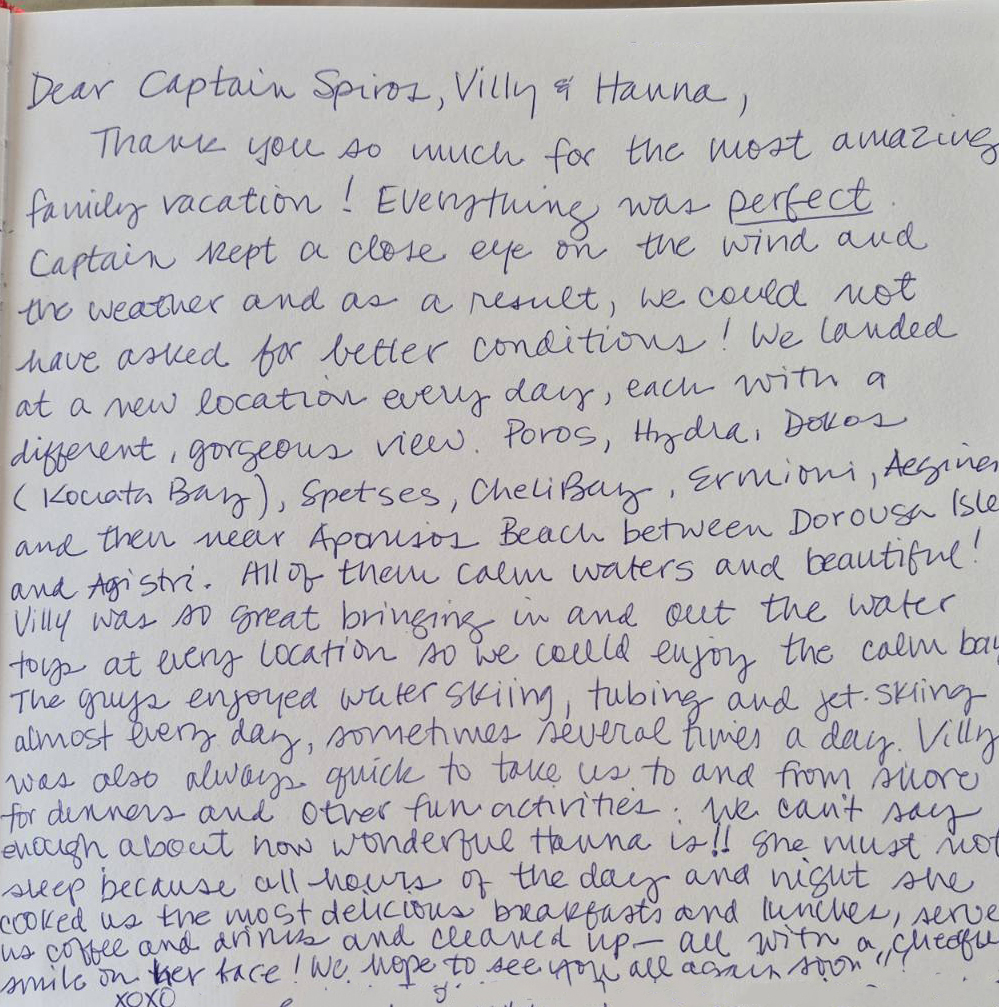 Dear Captain Spiros, Villy & Hanna,
Thank you so much for the most amazing
family vacation! Everything was perfect.
Captain kept a close eye on the wind and
the weather and as a result, we could not
have asked for better conditions! We landed
at a new location every day, each with a
different, gorgeous view. Poros, Hydra, Dokos
(Kouata Bay), Spetses, Cheli Bay, Ermioni, Aegines
and then near Aponisos Beach between Dorousa Isle
and Agistri. All of them calm waters and beautiful!
Villy was so great bringing in and out the water
toys at every location so we could enjoy the calm bay
The guys enjoyed water skiing, tubing and jet-skiing
almost every day, sometimes several times a day. Villy
was also always quick to take us to and from shore
for dinners and other fun activities. We can't say
enough about how wonderful Hanna is!! She must not
sleep because all hours of the day and night she
cooked us the most delicious breakfasts and lunches, serve
us coffee and drinks and cleaned up — all with a cheerful
smile on her face! We hope to see you all again soon!
XOXO